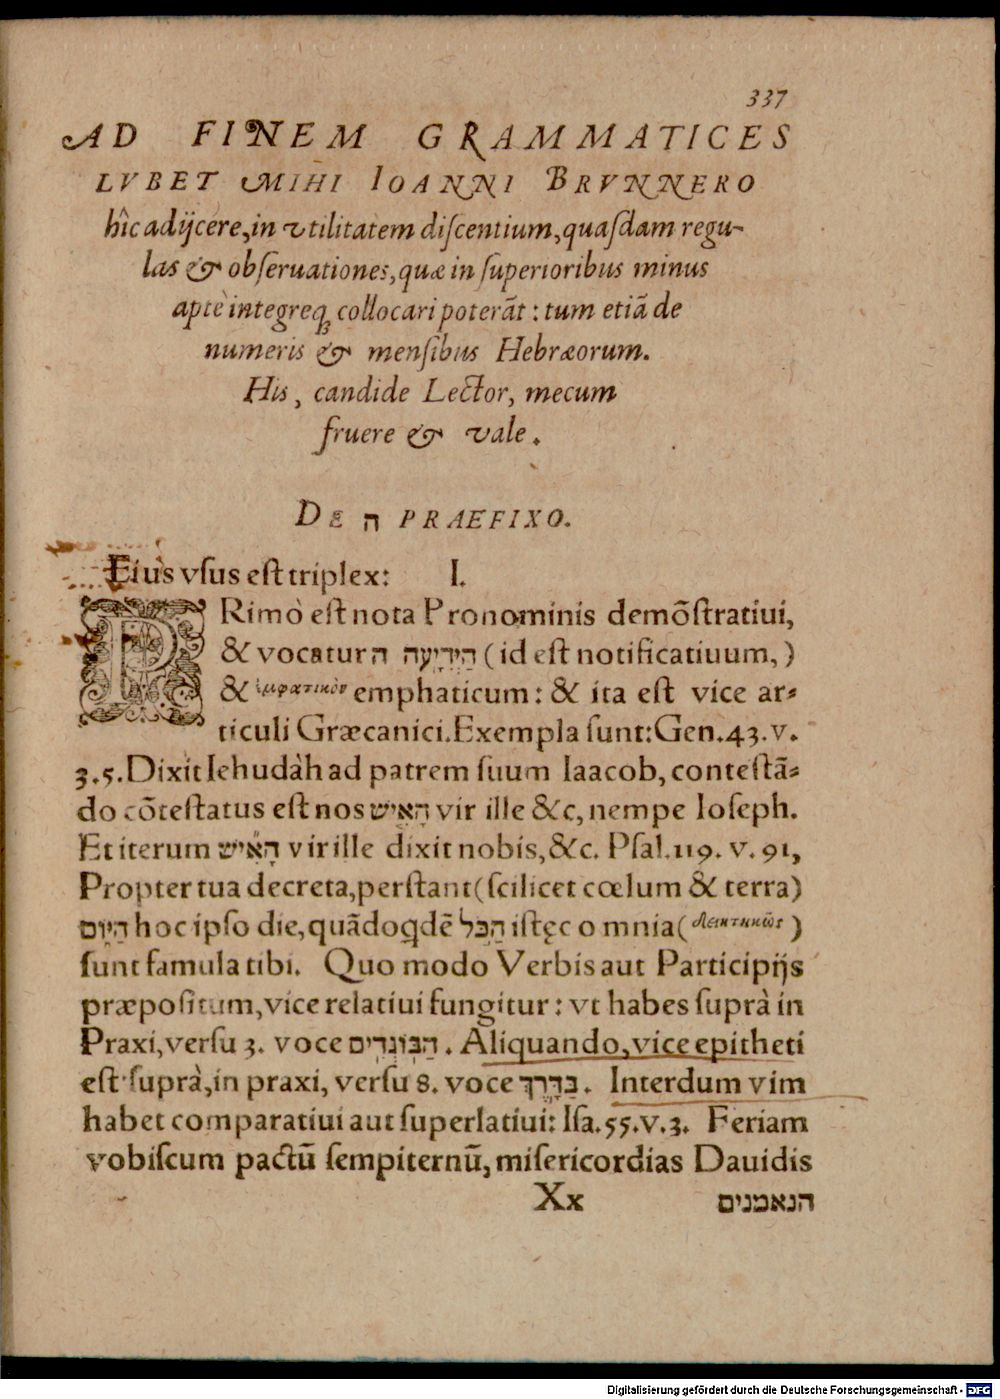 337
AD FINEM GRAMMATICES
LVBET MIHI IOANNI BRVNNERO
hîc adijcere, in vtilitatem diſcentium, quaſdam regu-
las & obſeruationes, quæ in ſuperioribus minus
aptè integreq; collocari poterāt : tum etiā de
numeris & menſibus Hebræorum.
His, candide Lector, mecum
fruere & vale.
DE ה PRAEFIXO.
Eius vſus eſt triplex: I.
PRimò eſt nota Pronominis demõſtratiui,
& vocatur ה הַיְדִיעָה (id eſt notificatiuum,)
& ἐμφατικὸν emphaticum: & ita eſt vice ar-
ticuli Græcanici. Exempla ſunt: Gen. 43. v.
3. 5. Dixit Iehudàh ad patrem ſuum Iaacob, conteſtā-
do cõteſtatus eſt nos הָאִישׁ vir ille &c, nempe Ioſeph.
Et iterum הָאִישׁ vir ille dixit nobis, &c. Pſal. 119. v. 91,
Propter tua decreta, perſtant (ſcilicet cœlum & terra)
הַיּוֹם hoc ipſo die, quādoqdē הַכֹּל iſtęc omnia (δεικτικῶς)
ſunt famula tibi. Quo modo Verbis aut Participijs
præpoſitum, vice relatiui fungitur : vt habes ſuprà in
Praxi, verſu 3. voce הַבּוֹגְדִים . Aliquando, vice epitheti
eſt ſuprà, in praxi, verſu 8. voce בַּדֶּרֶךְ . Interdum vim
habet comparatiui aut ſuperlatiui: Iſa. 55. v. 3. Feriam
vobiſcum pactū ſempiternū, miſericordias Dauidis
Xx הנאמנים
Digitalisierung gefördert durch die Deutsche Forschungsgemeinschaft - DFG